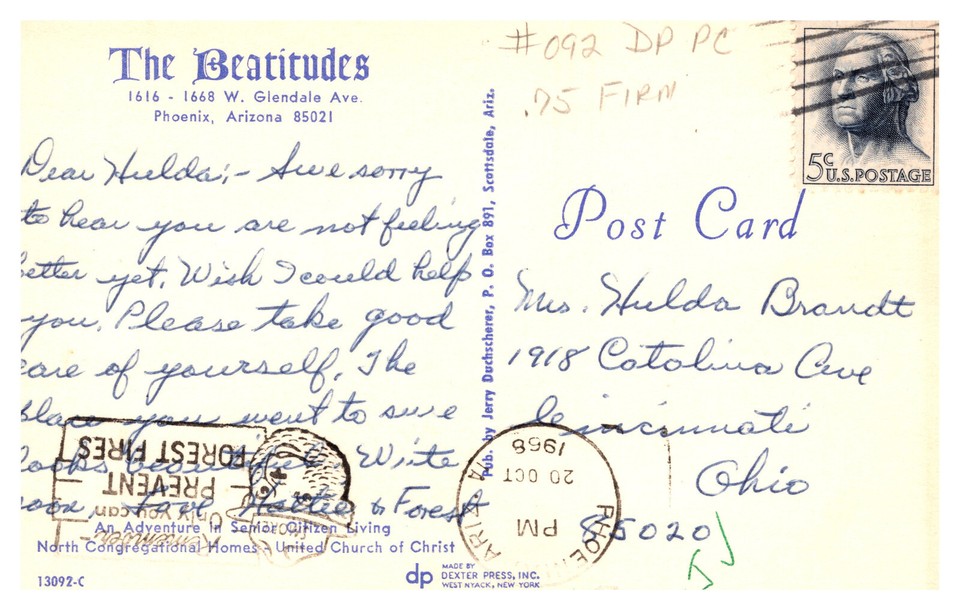 The Beatitudes
1616 - 1668 W. Glendale Ave.
Phoenix, Arizona 85021
Dear Hulda;- Awe sorry
to hear you are not feeling
better yet. Wish I could help
you. Please take good
care of yourself. The
place you went to
looks beautiful Write
soon, Love Hattie & Forest
An Adventure in Senior Citizen Living
North Congregational Homes - United Church of Christ
13092-C
Pub. by Jerry Duchscherer, P. O. Box 891, Scottsdale, Ariz.
dp MADE BY
DEXTER PRESS, INC.
WEST NYACK, NEW YORK
#092 DP PC
.75 FIRM
5c
U.S. POSTAGE
Post Card
Mrs. Hulda Brandt
1918 Catalina Ave
Cincinnati
Ohio
85020
PHOENIX
ARIZ
PM
20 OCT
1968
Remember-
Only you can
PREVENT
FOREST FIRES